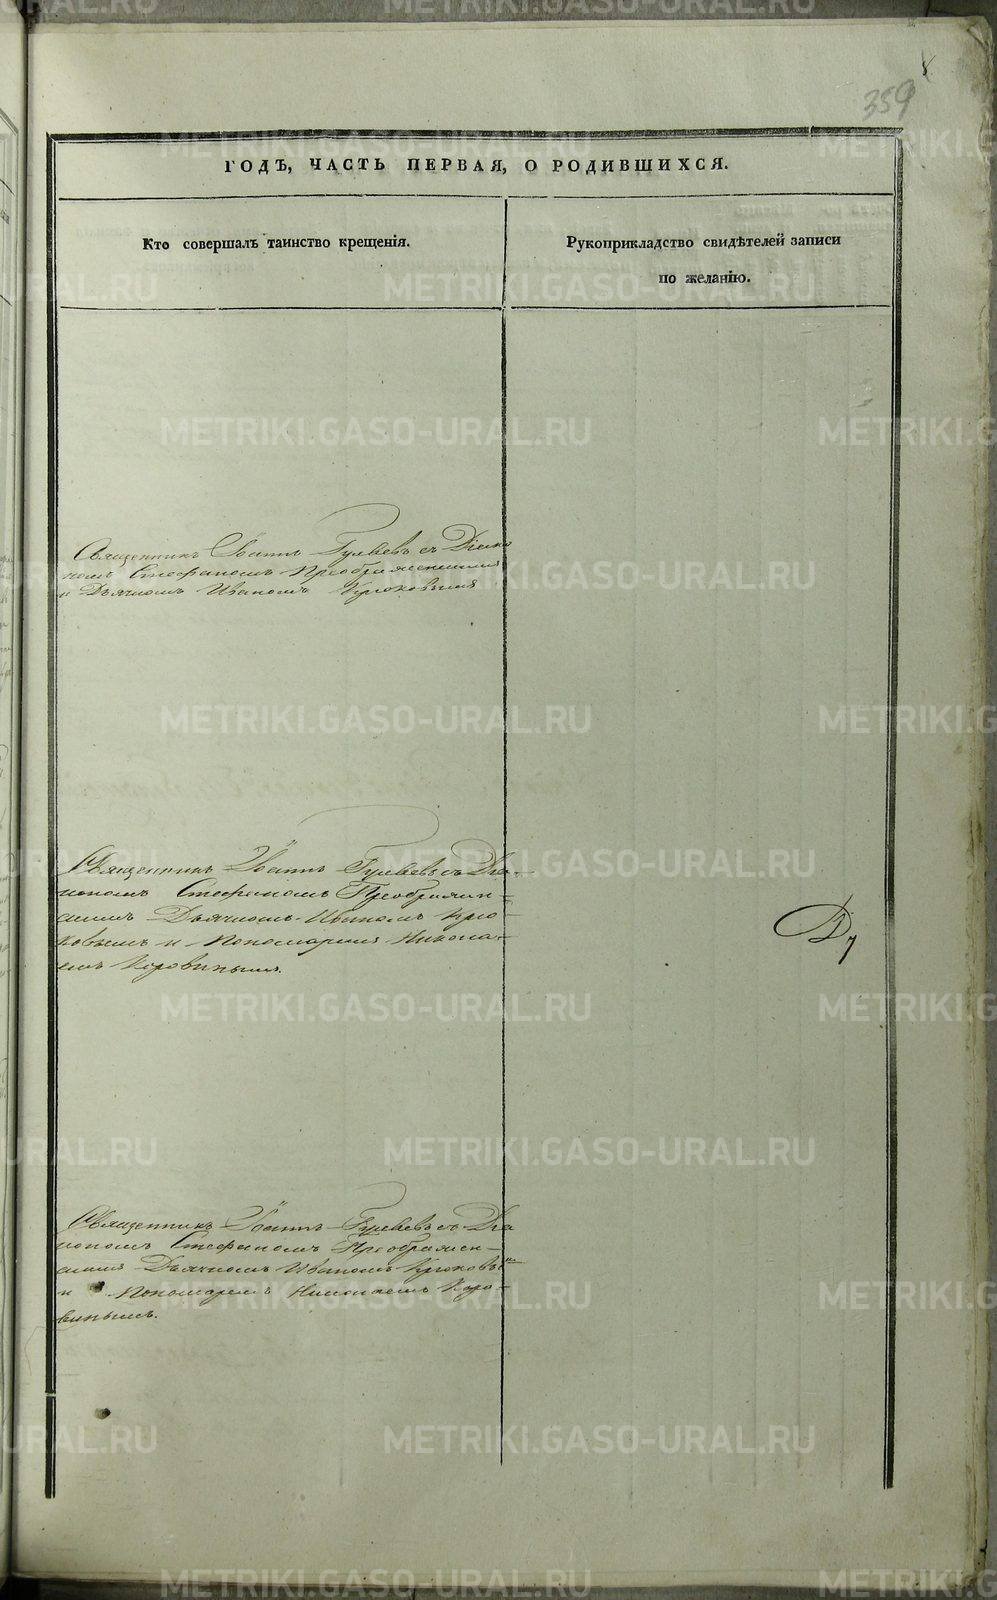 8
359
ГОДЪ, ЧАСТЬ ПЕРВАЯ, О РОДИВШИХСЯ.
Кто совершалъ таинство крещенія.
Рукоприкладство свидѣтелей записи
по желанію.
Священникъ Іоаннъ Гуляевъ съ Діако
номъ Стефаномъ Преображенскимъ
и Дьячкомъ Иваномъ Крюковымъ
Священникъ Іоаннъ Гуляевъ съ Діа-
кономъ Стефаномъ Преображен-
скимъ Дьячкомъ Иваномъ Крю-
ковымъ и Пономаремъ Никола-
емъ Коровинымъ.
Священникъ Іоаннъ Гуляевъ съ Діа
кономъ Стефаномъ Преображен-
скимъ Дьячкомъ Иваномъ Крюковы
и Пономаремъ Николаемъ Коро-
винымъ.
METRIKI.GASO-URAL.RU